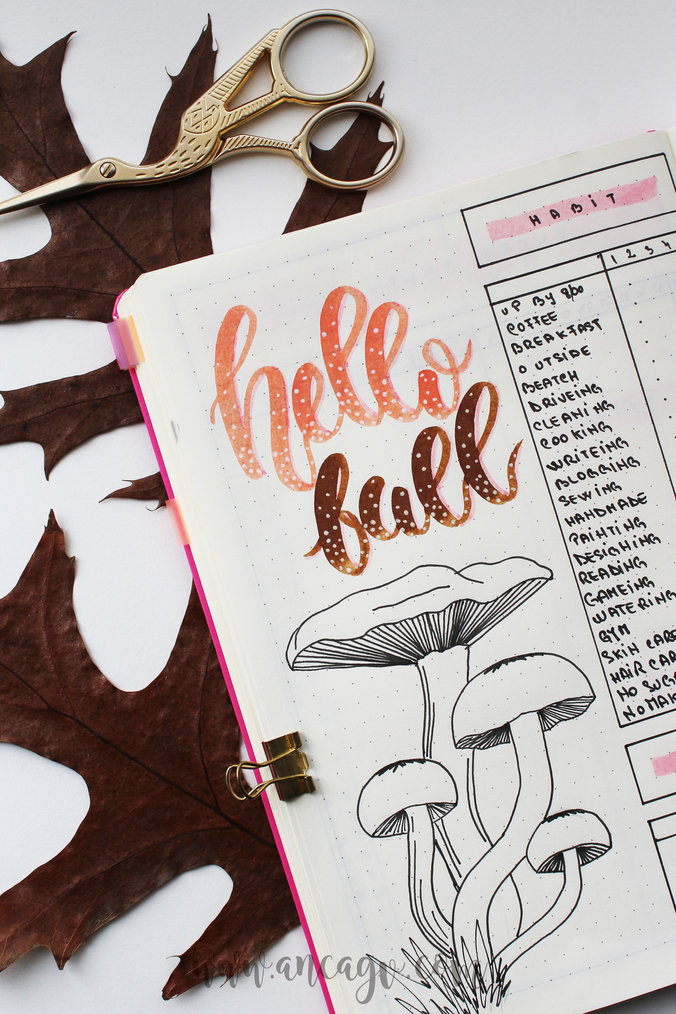 hello
fall
HABIT
1 2 3 4
UP BY 8:00
COFFEE
BREAKFAST
OUTSIDE
BEATCH
DRIVEING
CLEANING
COOKING
WRITEING
BLOGGING
SEWING
HANDMADE
PAINTING
DESIGHING
READING
GAMEING
WATERING
GYM
SKIN CARE
HAIR CAR
NO SUG
NO MAK
www.ancago.com